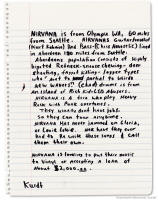 NIRVANA is from Olympia WA, 60 miles
from Seattle. NIRVANA's Guitar/vocalist
(Kurt Kobain) and Bass (Chris Novoselic) lived
in Aberdeen 150 miles from Seattle.
Aberdeens population consists of highly
bigoted Redneck-snoose chewing-deer
shooting, faggot killing-logger types
who "Aint too partial to weirdo
NEW WAVERS" (Chad) drums is from
an island of Rich kids LSD abusers.
NIRVANA is a trio who play Heavy
Rock with Punk overtones.
They usually dont have jobs.
So they can Tour anytime.
NIRVANA Has never jammed on Gloria,
or Louie Louie. Nor have they ever
had to Re write these songs & Call
them their own.
NIRVANA is looking to put their music
to vinyl or accepting a loan of
about $2,000.00.
Kurdt